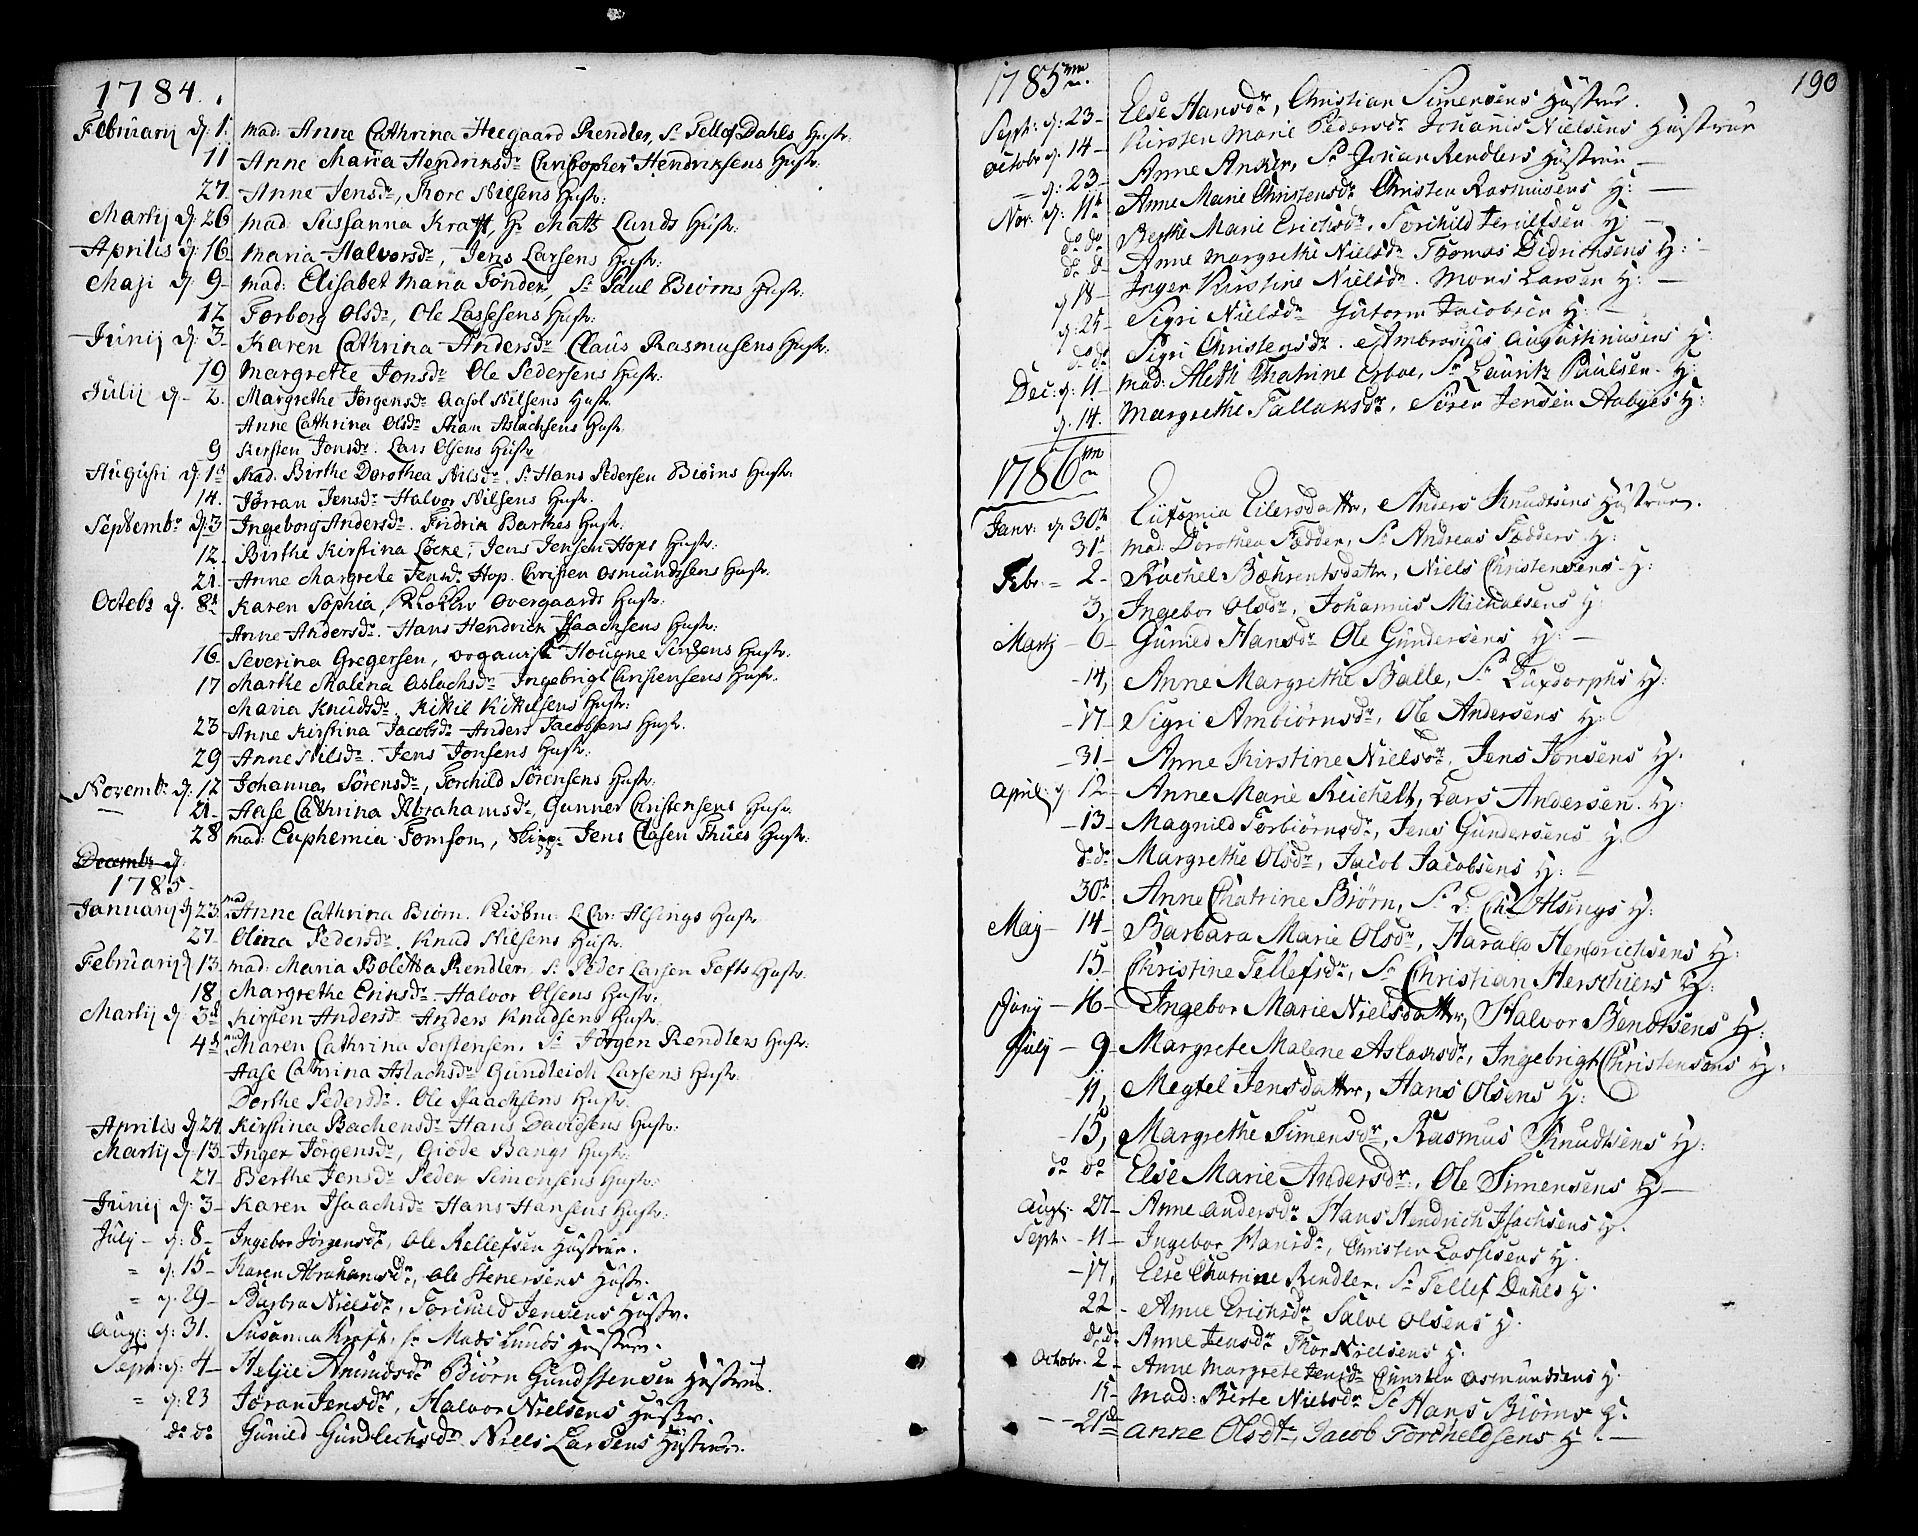 1784.
Februarij d: 1. mad: Anne Cathrina Heegaard Rendler, Sr Tellef Dahls Hustr:
11 Anne Maria Hendriksdr Christopher Hendriksens Hustr.
27. Anne Jensdr, Thore Nilsens Hustr:
Martij d: 26 mad: Sussanna Kraft, Hr Matts Lunds Hustr:
Aprilis d: 16. Maria Halvorsdr, Jens Larsens Hustr:
Maji d: 9. mad: Elisabet Maria Tønder, Sr Paul Biørns Hustr:
12 Torborg Olsdr, Ole Lassesens Hustr:
Junij d: 3. Karen Cathrina Andersdr Claus Rasmusens Hustr:
19 Margrethe Jonsdr Ole Pedersens Hustr:
Julij d. 2. Margrethe Jørgensdr Aasol Nilsens Hustr
Anne Cathrina Olsdr Aslachsens Hustr.
9 Kirsten Jonsdr. Lars Olsens Hustr
Augusti d: 1ste Mad. Birthe Dorothea Nilsdr. Sr Hans Pedersen Biørns Hustr.
14. Jørran Jensdr Halvor Nilsens Hustr.
Septembr d: 3 Ingeborg Andersdr. Fridrik Barthes Hustr:
12. Birthe Kirstina Løcke, Jens Jensen Hops Hustr:
21. Anne Margrete Jensdr Hop. Christen Osmundsens Hustr.
Octobr d. 8de Karen Sophia, Overgaards Hustr.
Anne Andersdr. Hans Hendrich Isaachsens Hustr:
16. Severina Gregersen, organist Hougne Hustr:
17 Marthe Malena Aslachsdr Ingebrigt Christensens Hustr.
Maria Knudsdr. Kittil Kittilsens Hustr:
23 Anne Kirstina Jacobsdr Anders Jacobsens Hustr.
29 Anne Nilsdr. Jens Jonsens Hustr:
Novembr d: 12 Johanna Sørensdr, Torchild Sørensens Hustr:
21. Aase Cathrina Abrahamsdr, Gunner Christensens Hustr.
28 mad: Euphemia Tomson, Skipp: Jens Clasen Thues Hustr:
Decembr d:
1785.
Januarij d 23. mad Anne Cathrina Biørn. Chr: Alsings Hustr
27. Olena Pedersdr. Knud Nilsens Hustr.
Februarij d 13. mad: Maria Boletta Rendler, Sr Peder Larsen Tofts Hustr.
18 Margrethe Eriksdr. Halvor Olsens Hustr:
Martij d: 3de Kirsten Andersdr Anders Knudsens Hustr
4de mad Maren Cathrina Torstensen, Sr Jørgen Rendlers Hustr:
Aase Cathrina Aslachsdr Gundleich Larsens Hustr.
Dorthe Pedersdr. Ole Isaachsens Hustr.
Aprilis d 24. Kirstina Bachensdr Hans Davidsens Hustr:
Martij d: 13. Inger Jørgensdr, Giøde Bangs Hustr:
27. Berthe Jonsdr Peder Simonsens Hustr:
Junij d: 3. Karen Isaachsdr Hans Hansens Hustr:
July - d: 8. Ingebor Jørgensdr, Ole Kellefsen Hustrue.
= d: 15 - Karen Abrahamsdr, Ole Stenersens Hustr.
= d. 29 - Barbra Nielsdr, Torchild Jensens Hustr.
Augt: d: 31. Susanna Kraft, Sr Mads Lunds Hustrue.
Sept: d: 4 - Helje Amundsdr Biørn Gundstensen Hustrue.
= d: 23 Jøran Jensdr, Halvor Nielsens Hustr.
do do Gunild Gundlechsdr Niels Larsens Hustrue.
1785 190
Sept: d: 23 - Else Hansdr, Christian Simensens Hustrue.
octobr d. 14 - Kirsten Marie Pedersdr Johanis Nielsens Hustrue
= d: 23 - Anne Anker, Sr Johan Rendlers Hustrue -
Nov: d: 11te Anne Marie Christensdr Christen Rasmusens H: -
do do Berthe Marie Erichsdr, Torchild Terielfsen H: -
do d Anne Margrethe Nielsdr Thomas Didrichsens H: -
d 18 - Inger Kirstine Nielsdr. Mons Larsen H: -
d: 25 - Sigri Nielsdr Gutorm Jacobsen H: -
do do Sigri Christensdr. Ambrosius Augustinusens H:
Dec: d: 11 - mad: Aleth Chatrine Orboe, Sr Lauritz Paulsen. H:
d. 14. Margrethe Tallaksdr, Søren Jensen Aabyes H:
1786
Janv: d: 30te Eufemia Eilersdattr, Anders Knudtsens Hustrue.
31te mad: Dorothea Fædder, Sr Andreas Fædders H:
Febr: = 2 - Rachel Bæhrentsdattr, Niels Christensens H:
3, Ingebor Olsdr, Johannis Michalsens H:
Martj - 6 - Gunild Hansdr Ole Gundersens H: -
- 14, Anne Margrethe Balle, Sr Luxdorphs H:
- 17 - Sigri Ambiørnsdr, Ole Andersens H:
- 31 - Anne Kirstine Nielsdr, Jens Jonsens H.
April: d: 12 - Anne Marie Reichelt, Lars Andersen. H:
- 13 - Magnild Torbiørnsdr, Jens Gundersens H:
do do Margrethe Olsdr, Jacob Jacobsens H: -
30te Anne Chatrine Biørn, Sr L: Chr Alsings H:
Maj - 14 - Barbara Marie Olsdr, Harald Hendrichsens H:
15 - Christine Tellefsdr, Sr Christian Herschiers H:
Junij - 16 - Ingebor Marie Nielsdattr, Halvor Bendtsens H:
Julij - 9 - Margrete Malene Aslaksdr, Ingebrigt Christensens H:
- 11, Megtel Jensdattr, Hans Olsens H:
- 15, Margrethe Simensdr, Rasmus Knudtsens H:
do do Else Marie Andersdr. Ole Simensens H -
Augt: 27 - Anne Andersdr Hans Hendrich Isachsens H.
Sept. - 11 - Ingebor Hansdr, Christen Lassesens H.
- 17, Else Chatrine Rendler, Sr Tellef Dahls H.
22 - Anne Erichsdr Salve Olsens H.
do do Anne Jensdr Thor Nielsens H.
Octobr. 2 - Anne Margrete Jensdr Christen Osmundsens H.
15 - Mad: Birte Nielsdr Sr Hans Biørns H.
- - 21de Anne Olsdtr, Jacob Torcheldsens H. -